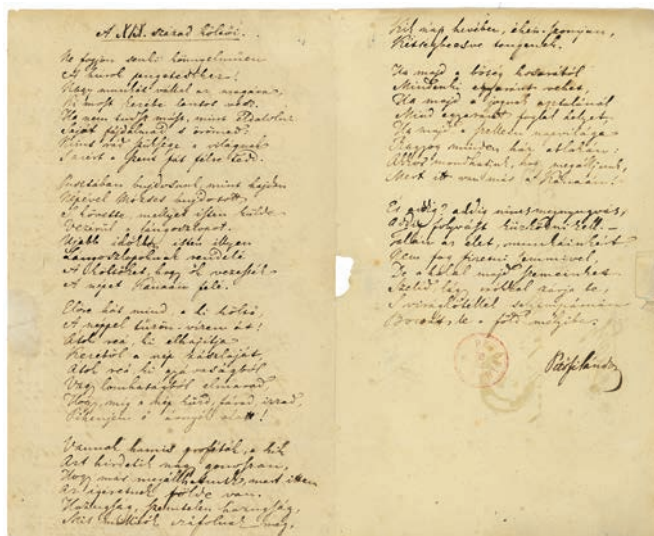 A XIX. század költői.
Ne fogjon senki könnyelműen
A húrok pengetéséhez!
Nagy munkát vállal az magára,
Ki most kezébe lantot vesz.
Ha nem tudsz mást, mint eldalolni
Saját fájdalmad s örömed:
Nincs rád szüksége a világnak
S azért a szent fát félre tedd.
Pusztában bujdosunk, mint hajdan
Népével Mózses bujdosott,
S követte, mellyet isten külde
Vezérül, a lángoszlopot.
Ujabb időkben isten illyen
Lángoszlopoknak rendelé
A költőket, hogy ők vezessék
A népet Kánaán felé.
Előre hát mind, a ki költő,
A néppel tűzön-vizen át!
Átok reá, ki elhajítja
Kezéből a nép zászlaját,
Átok reá, ki gyávaságból
Vagy lomhaságból elmarad,
Hogy, míg a nép küzd, fárad, izzad,
Pihenjen ő árnyék alatt!
Vannak hamis próféták, a kik
Azt hirdetik nagy gonoszan,
Hogy már megállhatunk, mert itten
Az igéretnek földe van.
Hazugság, szemtelen hazugság,
Mit milliók cáfolnak meg,
Kik nap hevében, éhen-szomjan,
Kétségbeesve tengenek.
Ha majd a bőség kosarából
Mindenki egyaránt vehet,
Ha majd a jognak asztalánál
Mind egyaránt foglal helyet,
Ha majd a szellem napvilága
Ragyog minden ház ablakán:
Akkor mondhatjuk, hogy megálljunk,
Mert itt van már a Kánaán!
És addig? addig nincs megnyugvás,
Addig folyvást küszködni kell. –
Talán az élet, munkáinkért
Nem fog fizetni semmivel,
De a halál majd szemeinket
Szelíd, lágy csókkal zárja be,
S virágkötéllel, selyempárnán
Bocsát le a föld mélyibe.
Petőfi Sándor